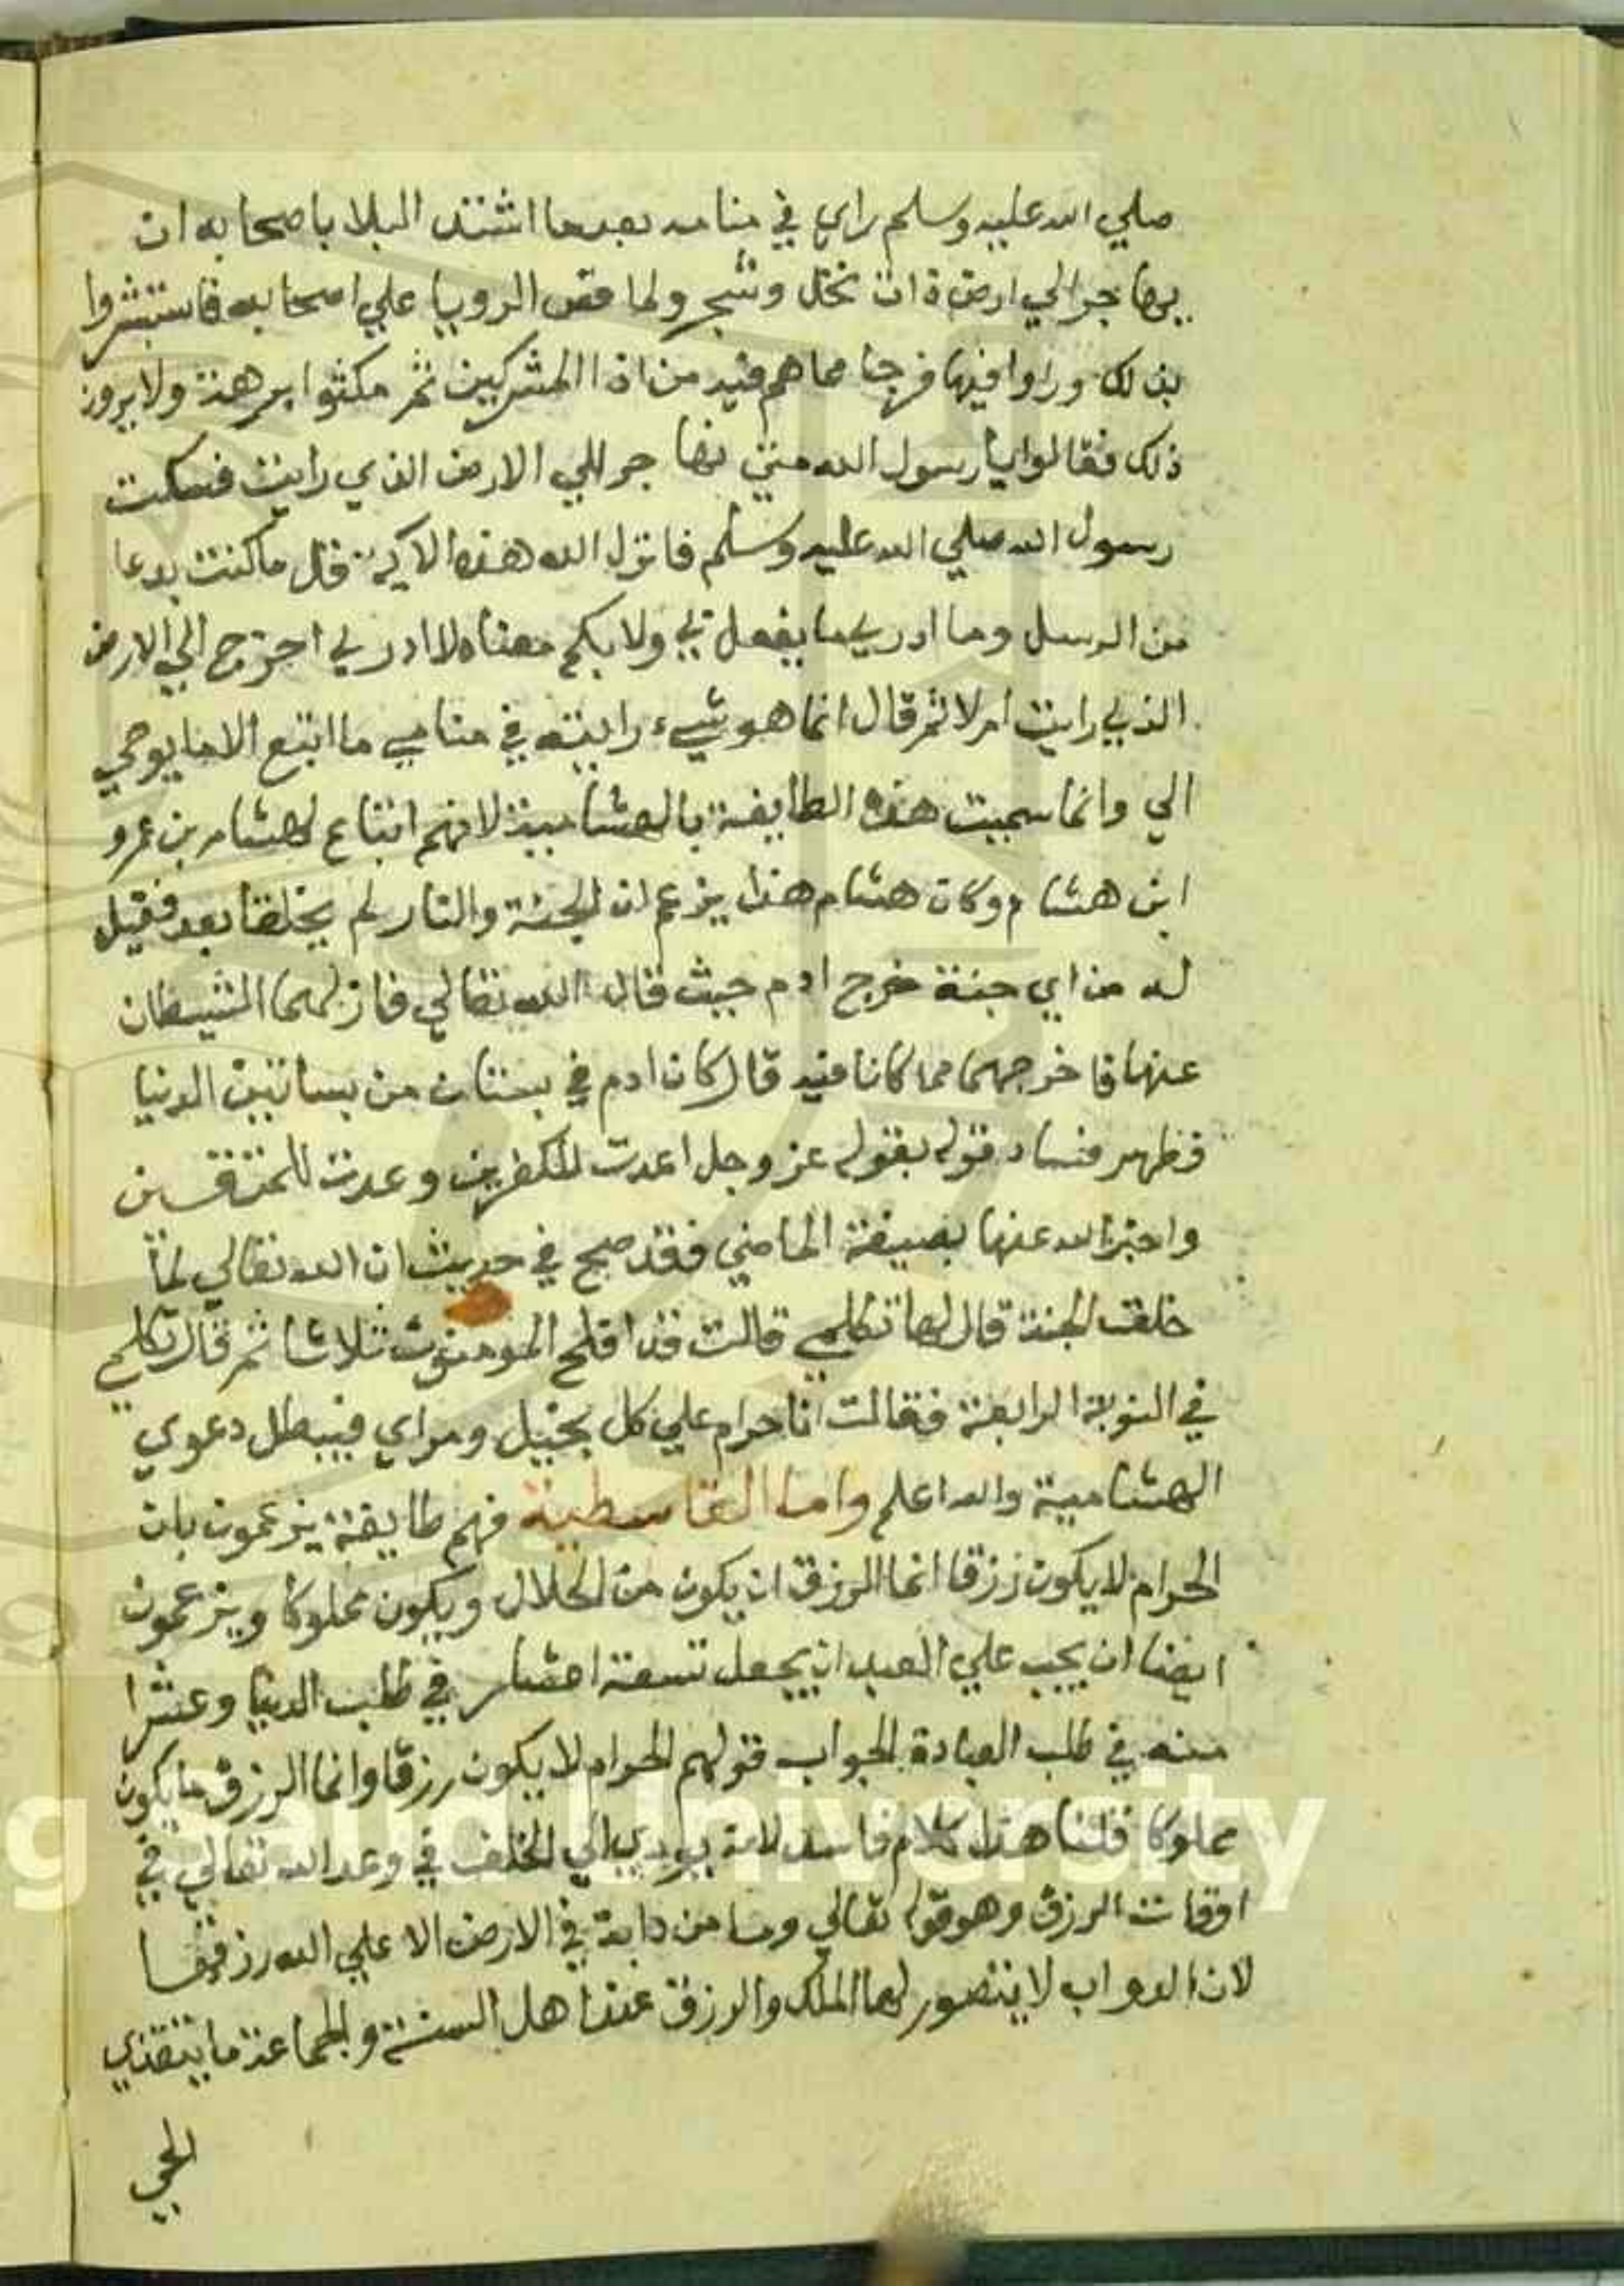 صلي الله عليه وسلم راي في منامه بعدما اشتد البلا باصحابه ان
يهاجر الي ارض ذات نخل وشجر ولما قص الرويا علي اصحابه فاستبشروا
بذلك وراوا فيها فرجا مما هم فيه من اذا المشركين ثم مكثوا برهة ولا يرون
ذلك فقالوا يا رسول الله متي نهاجر اللي الارض الذي رايت فسكت
رسول الله صلي الله عليه وسلم فانزل الله هذه الاية قل ما كنت بدعا
من الرسل وما ادري ما يفعل بي ولا بكم معناه لا ادري اخرج الي الارض
الذي رايت ام لا ثم قال انما هو شيء رايته في منامي ما اتبع الا ما يوحي
الي وانما سميت هذه الطايفة بالهشامية لانهم اتباع لهشام بن عمرو
ابن هشام وكان هشام هذا يزعم ان الجنة والنار لم يخلقا بعد فقيل
له من اي جنة خرج ادم حيث قال الله تعالي فازلهما الشيطان
عنها فاخرجهما مما كانا فيه قال كان ادم في بستان من بساتين الدنيا
فظهر فساد قوله بقوله عز وجل اعدت للكفرين وعدت للمتقين
واخبر الله عنها بصيغة الماضي فقد صح في حديث ان الله تعالي لما
خلق الجنة قال لها تكلمي قالت قد افلح المومنون ثلاثا ثم قال تكلمي
في النوبة الرابعة فقالت انا حرام علي كل بخيل ومراي فيبطل دعوي
الهشامية والله اعلم واما القاسطية فهم طايفة يزعمون بان
الحرام لا يكون رزقا انما الرزق ان يكون من الحلال ويكون مملوكا ويزعمون
ايضا ان يجب علي العبد ان يجعل تسعة اعشار في طلب الدنيا وعشرا
منه في طلب العبادة الجواب قولهم الحرام لا يكون رزقا وانما الرزق ما يكون
مملوكا قلنا هذا كلام فاسد لانه يودي الي الخلف في وعد الله تعالي في
اوقات الرزق وهو قوله تعالي وما من دابة في الارض الا علي الله رزقها
لان الدواب لا يتصور لها الملك والرزق عند اهل السنة والجماعة ما يتغذي
الحي
g Saud University